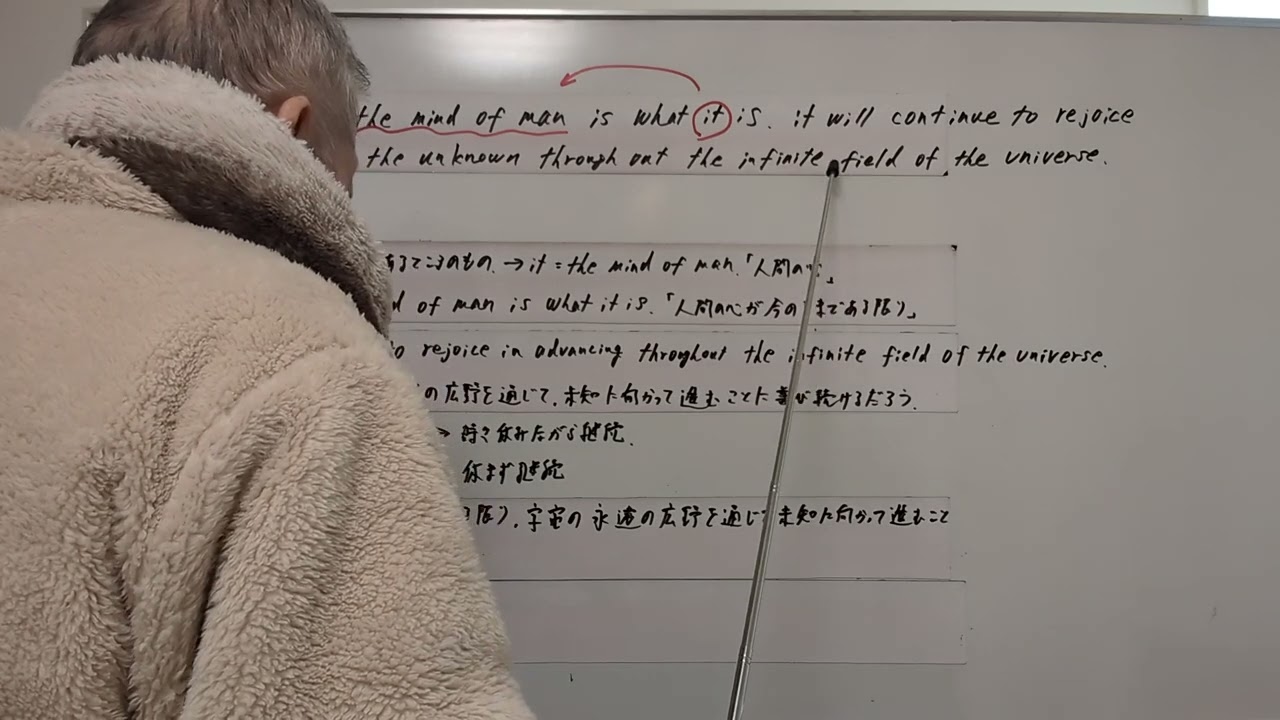 the mind of man is what it is. it will continue to rejoice
the unknown through out the infinite field of the universe.
あるところのもの. → it = the mind of man.「人間の心」
of man is what it is.「人間の心が今のままである限り」
to rejoice in advancing throughout the infinite field of the universe.
の広野を通じて、未知に向かって進むことに喜び続けるだろう.
→ 時々休みながら継続.
休まず継続
限り), 宇宙の永遠の広野を通じ 未知に向かって進むこと